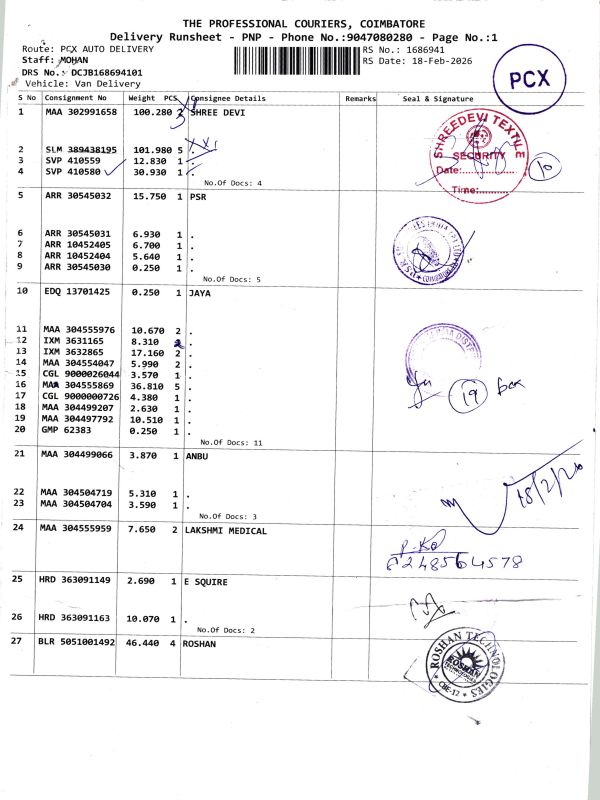 THE PROFESSIONAL COURIERS, COIMBATORE
Delivery Runsheet - PNP - Phone No.:9047080280 - Page No.:1
Route: PCX AUTO DELIVERY RS No.: 1686941
Staff: MOHAN RS Date: 18-Feb-2026
DRS No.: DCJB168694101
Vehicle: Van Delivery
PCX
S No Consignment No Weight PCS Consignee Details Remarks Seal & Signature
1 MAA 302991658 100.280 SHREE DEVI
2 SLM 389438195 101.980 5 .
3 SVP 410559 12.830 1 .
4 SVP 410580 30.930 1 .
No.Of Docs: 4
SHREEDEVI TEXTILE
SECURITY
Date:
Time:
10
5 ARR 30545032 15.750 1 PSR
6 ARR 30545031 6.930 1 .
7 ARR 10452405 6.700 1 .
8 ARR 10452404 5.640 1 .
9 ARR 30545030 0.250 1 .
No.Of Docs: 5
10 EDQ 13701425 0.250 1 JAYA
11 MAA 304555976 10.670 2 .
12 IXM 3631165 8.310 .
13 IXM 3632865 17.160 2 .
14 MAA 304554047 5.990 2 .
15 CGL 9000026044 3.570 1 .
16 MAA 304555869 36.810 5 .
17 CGL 9000000726 4.380 1 .
18 MAA 304499207 2.630 1 .
19 MAA 304497792 10.510 1 .
20 GMP 62383 0.250 1 .
No.Of Docs: 11
19 box
21 MAA 304499066 3.870 1 ANBU
22 MAA 304504719 5.310 1 .
23 MAA 304504704 3.590 1 .
No.Of Docs: 3
18/2/26
24 MAA 304555959 7.650 2 LAKSHMI MEDICAL
25 HRD 363091149 2.690 1 E SQUIRE
26 HRD 363091163 10.070 1 .
No.Of Docs: 2
27 BLR 5051001492 46.440 4 ROSHAN
ROSHAN TECHNOLOGIES
ROSHAN
CBE-12